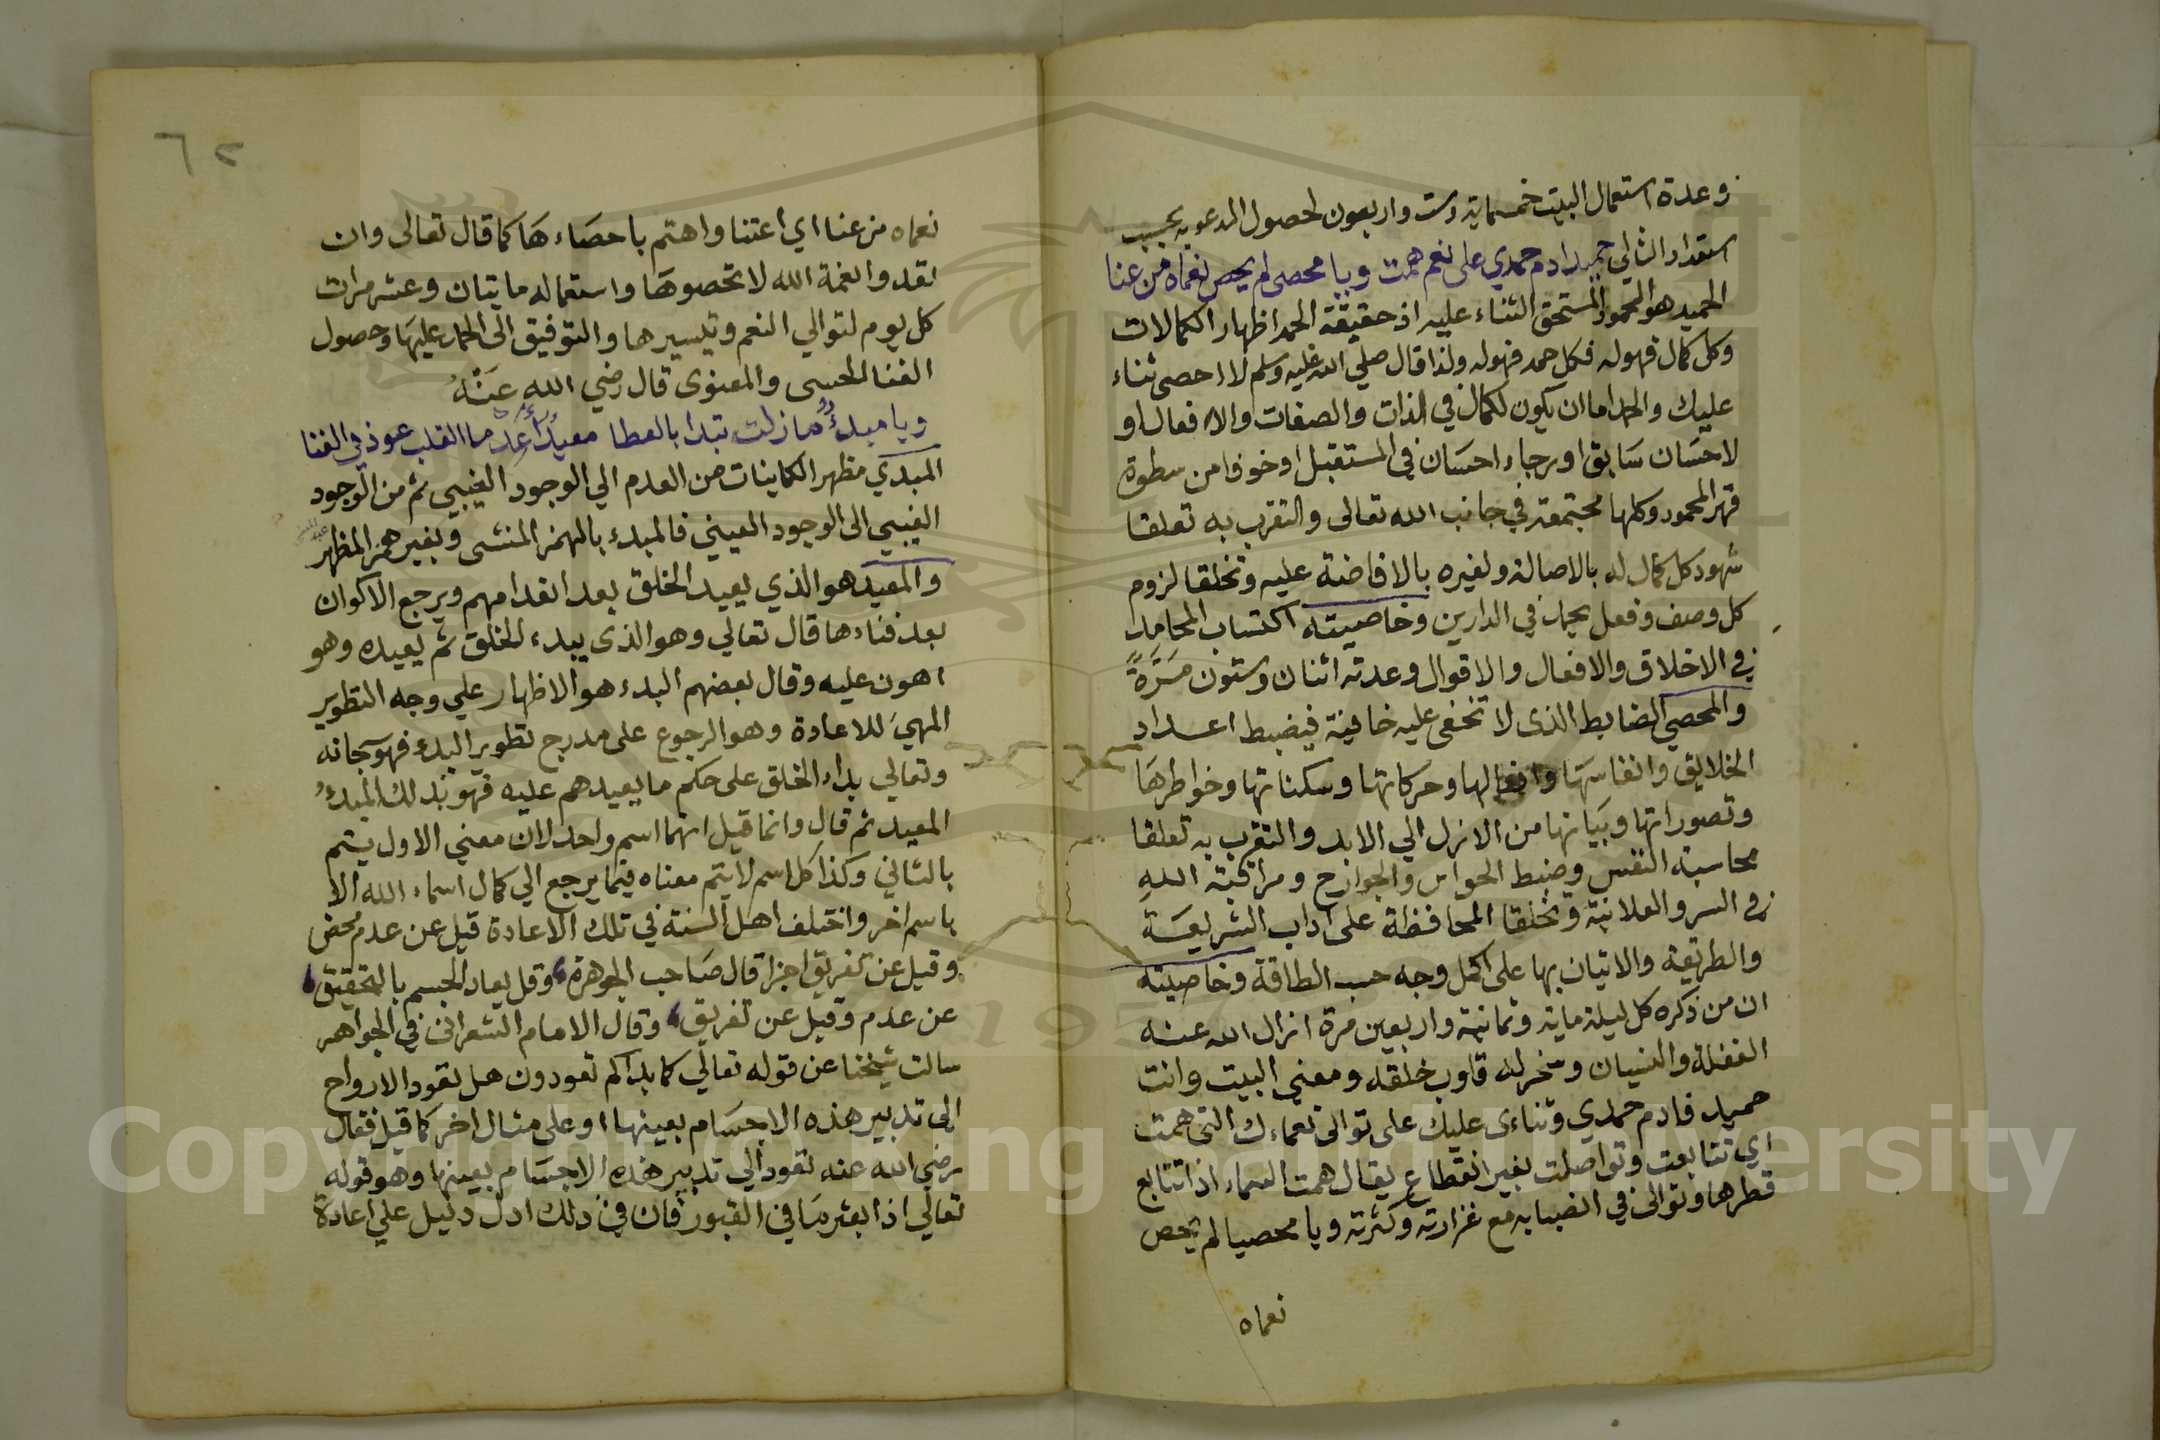 وعدة استعمال البيت خمسماية وست واربعون لحصول المدعو به بحسب
استعداد التالي حميد ادم حمدي على نعم همت ويا محصى لم يحص نعماه من عنا
الحميد هو المحمود المستحق الثناء عليه اذ حقيقة الحمد اظهار الكمالات
وكل كمال فهو له فكل حمد فهو له ولذا قال صلي الله عليه وسلم لا احصى ثناء
عليك والحمد اما ان يكون لكمال في الذات والصفات والافعال او
لاحسان سابق او رجاء احسان في المستقبل او خوفا من سطوة
قهر المحمود وكلها مجتمعة في جانب الله تعالى والتقرب به تعلقا
شهود كل كمال له بالاصالة ولغيره بالافاضة عليه وتخلقا لزوم
كل وصف وفعل يحمد في الدارين وخاصيته اكتساب المحامد
في الاخلاق والافعال والاقوال وعدته اثنان وستون مرة
والمحصي الضابط الذى لا تخفى عليه خافية فيضبط اعداد
الخلايق وانفاسها وافعالها وحركاتها وسكناتها وخواطرها
وتصوراتها وبيانها من الازل الي الابد والتقرب به تعلقا
محاسبة النفس وضبط الحواس والجوارح ومراقبة الله
في السر والعلانية وتخلقا المحافظة على اداب الشريعة
والطريقة والاتيان بها على اكمل وجه حسب الطاقة وخاصيته
ان من ذكره كل ليلة ماية وثمانية واربعين مرة ازال الله عنه
الغفلة والنسيان وسخر له قلوب خلقه ومعني البيت وانت
حميد فادم حمدي وثناءى عليك على توالى نعماءك التى همت
اي تتابعت وتواصلت بغير انقطاع يقال همت السماء اذا تتابع
قطرها وتوالى في انصبابه مع غزارته وكثرته ويا محصيا لم يحص
نعماه
٦٢
نعماه من عنا اي اعتنا واهتم باحصاءها كما قال تعالى وان
تعدوا نعمة الله لا تحصوها واستعماله مايتان وعشر مرات
كل يوم لتوالي النعم وتيسيرها والتوفيق الى الحمد عليها وحصول
الغنا الحسى والمعنوى قال رضي الله عنه
ويا مبدء ما زلت تبدا بالعطا معيد اعد ما القلب عوذ في الفنا
المبدي مظهر الكاينات من العدم الي الوجود الغيبي ثم من الوجود
الغيبي الى الوجود العيني فالمبدء بالهمز المنشى وبغير همز المظهر
والمعيد هو الذي يعيد الخلق بعد انعدامهم ويرجع الاكوان
بعد فناءها قال تعالي وهو الذى يبدء الخلق ثم يعيده وهو
اهون عليه وقال بعضهم البدء هو الاظهار علي وجه التطوير
المهي للاعادة وهو الرجوع على مدرج تطوير البدء فهو سبحانه
وتعالي بداء الخلق على حكم ما يعيدهم عليه فهو بذلك المبدء
المعيد ثم قال وانما قيل انهما اسم واحد لان معني الاول يتم
بالثاني وكذا كل اسم لا يتم معناه فيما يرجع الي كمال اسماء الله الا
باسم اخر واختلف اهل السنة في تلك الاعادة قيل عن عدم محض
وقيل عن تفريق اجزا قال صاحب الجوهرة وقل يعاد الجسم بالتحقيق
عن عدم وقيل عن تفريق وقال الامام الشعرانى في الجواهر
سالت شيخنا عن قوله تعالي كما بداكم تعودون هل تعود الارواح
الى تدبير هذه الاجسام بعينها او على مثال اخر كما قيل فقال
رضي الله عنه تعود الي تدبير هذه الاجسام بعينها وهو قوله
تعالي اذا بعثر ما في القبور فان في ذلك ادل دليل علي اعادة
Copyright © King Saud University
1957